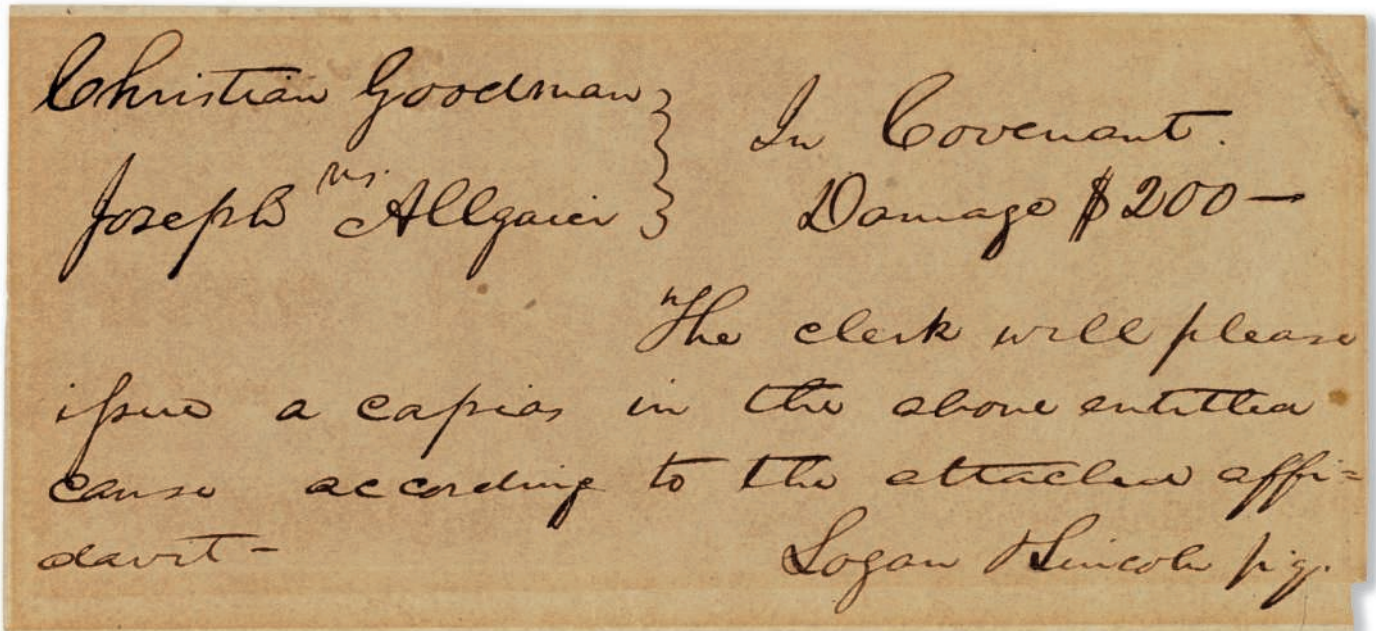 Christian Goodman } In Covenant.
vs.
Joseph Allgaier } Damage $200—
The clerk will please
issue a capias in the above entitled
cause according to the attached affi=
davit—
Logan & Lincoln p.q.